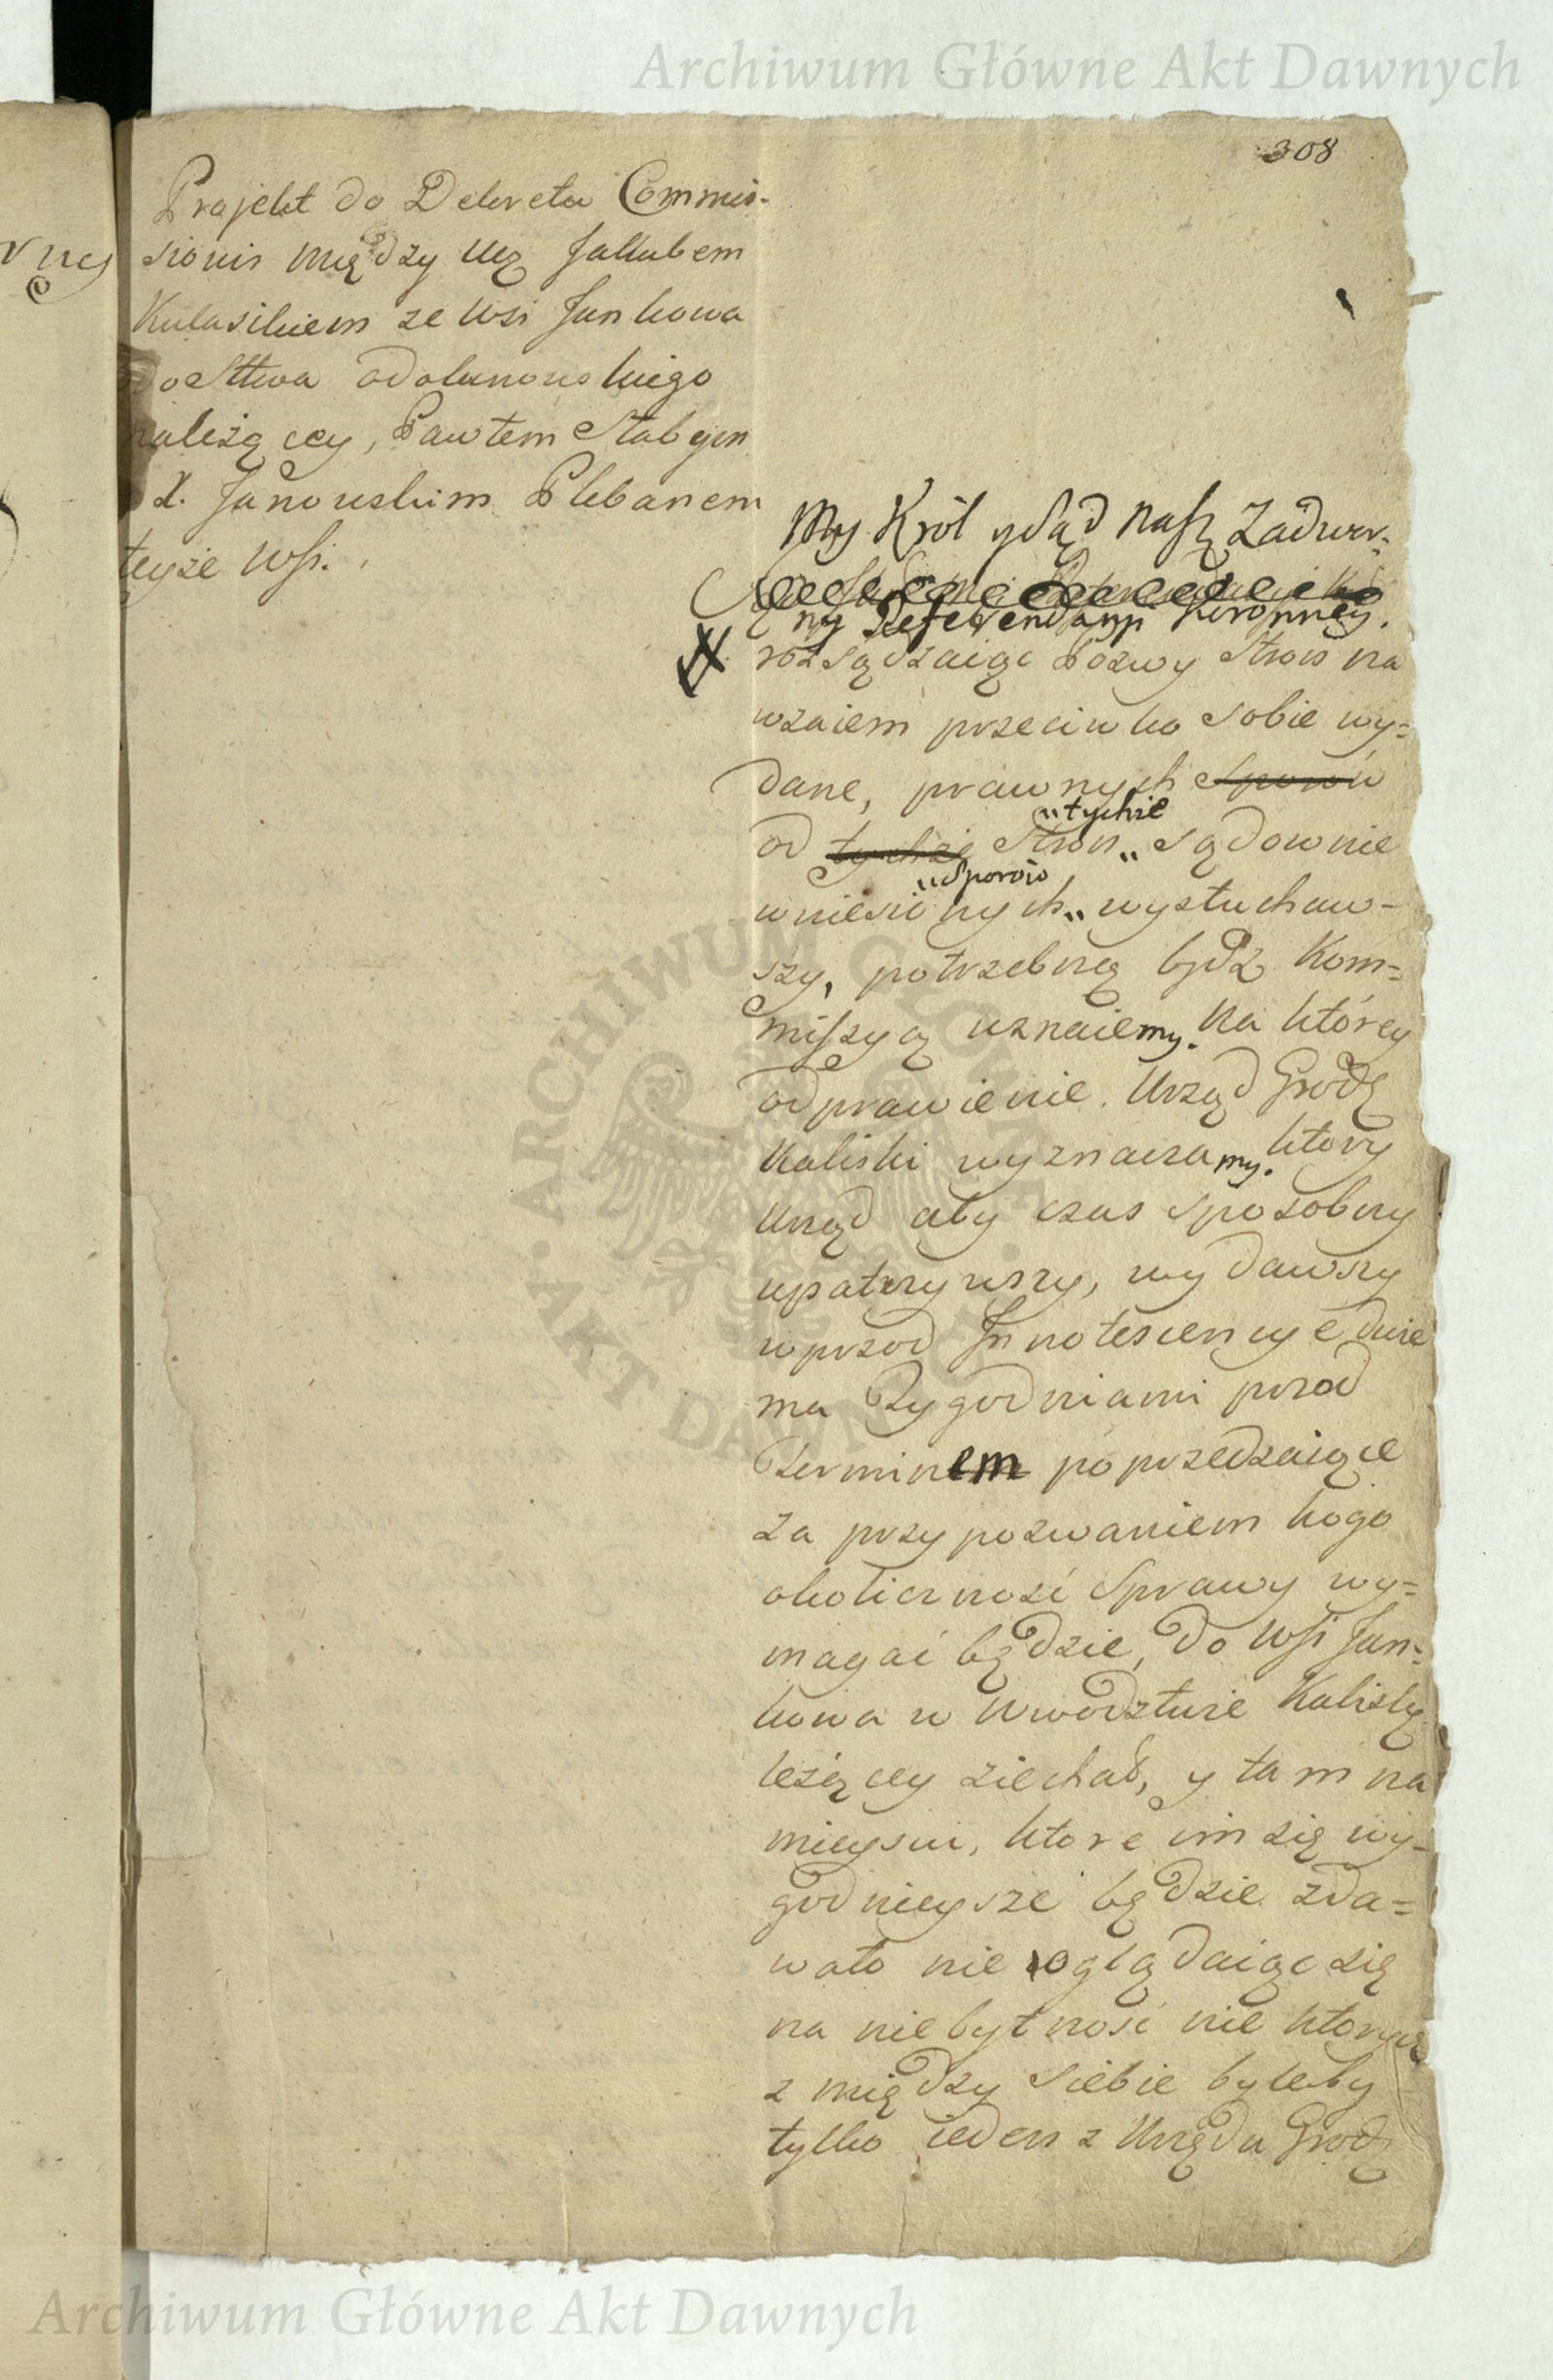 Archiwum Główne Akt Dawnych
308
Projekt do Dekretu Commis-
sionis między Ucz Jakubem
Kulasikiem ze Wsi Jankowa
do Sttwa odolanowskiego
należącey, Pawłem Słabym
X. Janowskim Plebanem
teyże Wsi.
My Król y Sąd Nasz Zadwor-
ny Referendaryi Koronney.
rozsądzaiąc Pozwy Stron na
wzaiem przeciwko sobie wy=
dane, prawnych Sporów
„tychże
od tychże Stron „ sądownie
„Sporów
wniesionych „ wysłuchaw-
szy, potrzebną bydź Kom=
missyą uznaiemy. Na którey
odprawienie Urząd Grodz
Kaliski wyznaczamy. który
Urząd aby czas sposobny
upatrzywszy, wydawszy
wprzod Innotescencye dwie
ma Tygodniami przed
Terminem poprzedzaiące
za przypozwaniem kogo
okoliczność Sprawy wy=
magać będzie, do Wsi Jan=
kowa w Wwodztwie Kalisk
leżącey ziechał, y tam na
mieyscu, ktore im się wy-
godnieysze będzie zda=
wało nie oglądaiąc się
na niebytność nie ktorych
z między siebie byleby
tylko ieden z Urzędu Grodz
ARCHIWUM GŁÓWNE · AKT DAWNYCH ·
Archiwum Główne Akt Dawnych